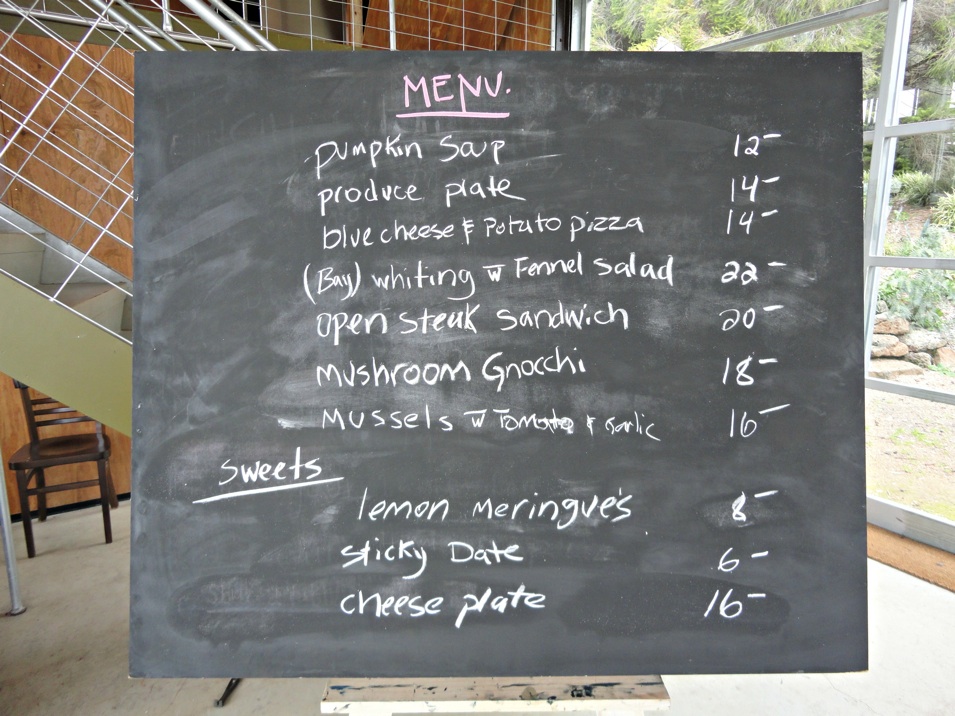 MENU.
pumpkin Soup 12-
produce plate 14-
blue cheese & Potato pizza 14-
(Bay) whiting w Fennel Salad 22-
open steak sandwich 20-
mushroom Gnocchi 18-
Mussels w Tomato & Garlic 16-
sweets
lemon Meringue's 8-
sticky Date 6-
cheese plate 16-